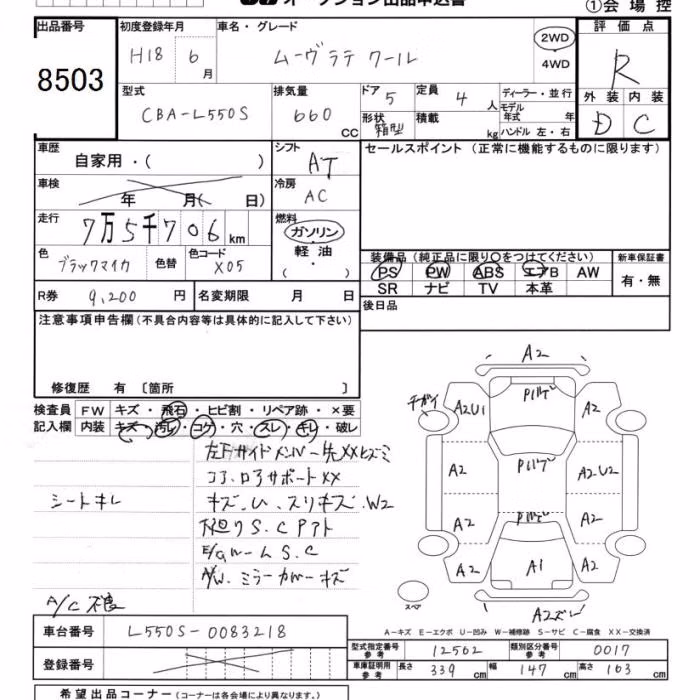 オークション出品申込書
①会場控
出品番号 初度登録年月 車名・グレード 評価点
8503 H18 6月 ムーヴラテ クール 2WD 4WD R
型式 CBA-L550S 排気量 660 CC ドア 5 形状 箱型 定員 4人 積載 kg ディーラー・並行 モデル年式 年 ハンドル 左・右 外装 D 内装 C
車歴 自家用・( ) シフト AT セールスポイント (正常に機能するものに限ります)
車検 年 月( 日) 冷房 AC
走行 7万5千706 km 燃料 ガソリン・軽油・( )
色 ブラックマイカ 色替 色コード X05
装備品(純正品に限り○をつけてください) 新車保証書
PS PW ABS エアB AW 有・無
SR ナビ TV 本革
R券 9,200 円 名変期限 月 日 後日品
注意事項申告欄(不具合内容等は具体的に記入して下さい)
修復歴 有 〔箇所 〕
検査員 FW キズ・飛石・ヒビ割・リペア跡・×要
記入欄 内装 キズ・汚レ・コゲ・穴・スレ・キレ・破レ
左下サイドメンバー先XXヒズミ
コア、ロアサポートXX
シートキレ
キズ、U、スリキズ、W2
下廻りS、Cアト
E/GルームS、C
A/W、ミラーカバーキズ
A/C不良
A2
チガイ A2U1 Pバゲ A2
A2 Pバゲ A2U2
A2 Pバゲ A2
A2 A1 A2
スペア A2ズレ
A-キズ E-エクボ U-凹み W-補修跡 S-サビ C-腐食 XX-交換済
車台番号 L550S-0083218
登録番号
型式指定番号 参考 12562 類別区分番号 参考 0017
車庫証明用 参考 長さ 339 cm 幅 147 cm 高さ 163 cm
希望出品コーナー (コーナーは各会場により異なります。)